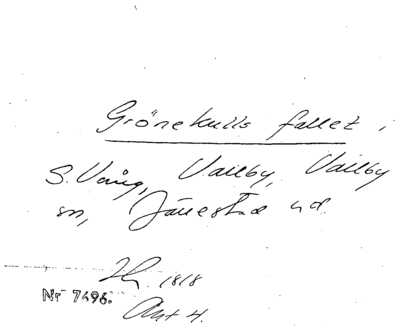 Grönekulls fallet,
S. Vång, Vallby, Vallby
sn, Järrestad hd.
1818
Nr 7696.
Akt 4.